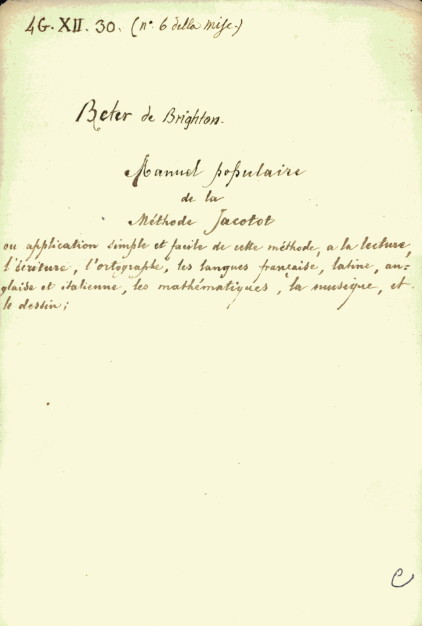 4G. XII. 30. (n.° 6 della Misc.)
Reter de Brighton.
Manuel populaire
de la
Méthode Jacotot
ou application simple et facile de cette méthode, a la lecture,
l'écriture, l'ortographe, les langues française, latine, an=
glaise et italienne, les mathématiques, la musique, et
le dessin;
C